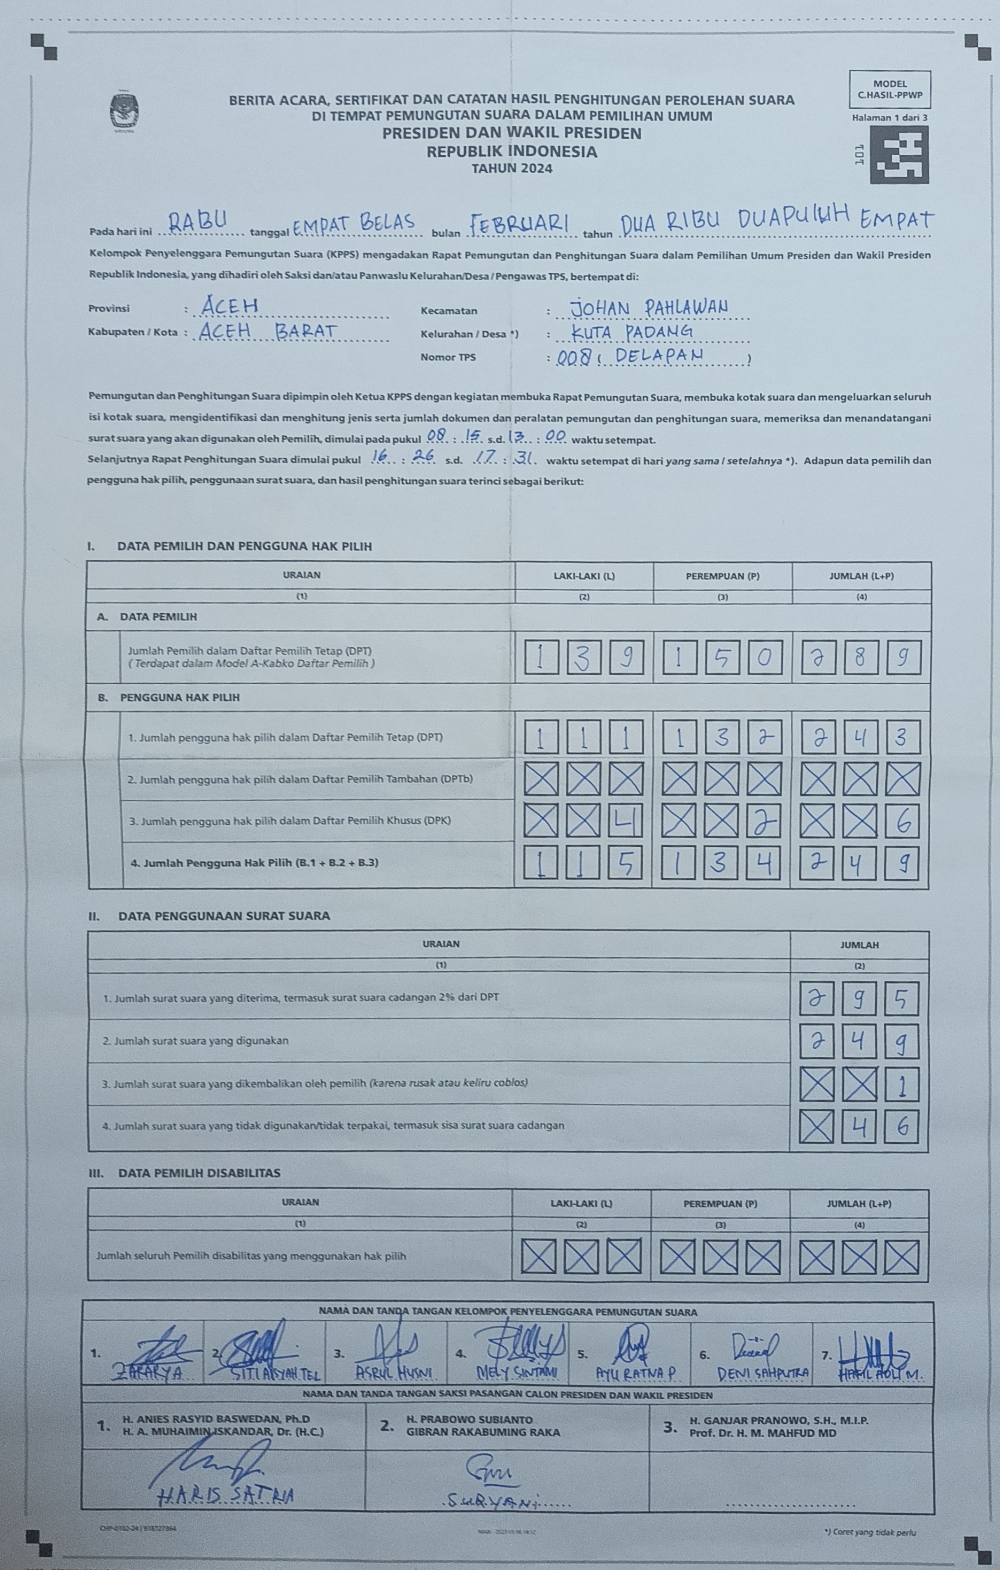 MODEL
C.HASIL-PPWP
Halaman 1 dari 3
101
BERITA ACARA, SERTIFIKAT DAN CATATAN HASIL PENGHITUNGAN PEROLEHAN SUARA
DI TEMPAT PEMUNGUTAN SUARA DALAM PEMILIHAN UMUM
PRESIDEN DAN WAKIL PRESIDEN
REPUBLIK INDONESIA
TAHUN 2024
Pada hari ini RABU tanggal EMPAT BELAS bulan FEBRUARI tahun DUA RIBU DUAPULUH EMPAT
Kelompok Penyelenggara Pemungutan Suara (KPPS) mengadakan Rapat Pemungutan dan Penghitungan Suara dalam Pemilihan Umum Presiden dan Wakil Presiden
Republik Indonesia, yang dihadiri oleh Saksi dan/atau Panwaslu Kelurahan/Desa/Pengawas TPS, bertempat di:
Provinsi : ACEH Kecamatan : JOHAN PAHLAWAN
Kabupaten / Kota : ACEH BARAT Kelurahan / Desa *) : KUTA PADANG
Nomor TPS : 008 ( DELAPAN )
Pemungutan dan Penghitungan Suara dipimpin oleh Ketua KPPS dengan kegiatan membuka Rapat Pemungutan Suara, membuka kotak suara dan mengeluarkan seluruh
isi kotak suara, mengidentifikasi dan menghitung jenis serta jumlah dokumen dan peralatan pemungutan dan penghitungan suara, memeriksa dan menandatangani
surat suara yang akan digunakan oleh Pemilih, dimulai pada pukul 08 : 15 s.d. 13 : 00 waktu setempat.
Selanjutnya Rapat Penghitungan Suara dimulai pukul 16 : 26 s.d. 17 : 31 waktu setempat di hari yang sama / setelahnya *). Adapun data pemilih dan
pengguna hak pilih, penggunaan surat suara, dan hasil penghitungan suara terinci sebagai berikut:
I. DATA PEMILIH DAN PENGGUNA HAK PILIH
URAIAN LAKI-LAKI (L) PEREMPUAN (P) JUMLAH (L+P)
(1) (2) (3) (4)
A. DATA PEMILIH
Jumlah Pemilih dalam Daftar Pemilih Tetap (DPT)
( Terdapat dalam Model A-Kabko Daftar Pemilih ) 1 3 9 1 5 0 2 8 9
B. PENGGUNA HAK PILIH
1. Jumlah pengguna hak pilih dalam Daftar Pemilih Tetap (DPT) 1 1 1 1 3 2 2 4 3
2. Jumlah pengguna hak pilih dalam Daftar Pemilih Tambahan (DPTb) X X X X X X X X X
3. Jumlah pengguna hak pilih dalam Daftar Pemilih Khusus (DPK) X X 4 X X 2 X X 6
4. Jumlah Pengguna Hak Pilih (B.1 + B.2 + B.3) 1 1 5 1 3 4 2 4 9
II. DATA PENGGUNAAN SURAT SUARA
URAIAN JUMLAH
(1) (2)
1. Jumlah surat suara yang diterima, termasuk surat suara cadangan 2% dari DPT 2 9 5
2. Jumlah surat suara yang digunakan 2 4 9
3. Jumlah surat suara yang dikembalikan oleh pemilih (karena rusak atau keliru coblos) X X 1
4. Jumlah surat suara yang tidak digunakan/tidak terpakai, termasuk sisa surat suara cadangan X 4 6
III. DATA PEMILIH DISABILITAS
URAIAN LAKI-LAKI (L) PEREMPUAN (P) JUMLAH (L+P)
(1) (2) (3) (4)
Jumlah seluruh Pemilih disabilitas yang menggunakan hak pilih X X X X X X X X X
NAMA DAN TANDA TANGAN KELOMPOK PENYELENGGARA PEMUNGUTAN SUARA
1. 2. 3. 4. 5. 6. 7.
ZAKARYA SITI AISYAH TEL ASRUL HUSNI MELY SINTAMI AYU RATNA P. DENI SAHPUTRA
NAMA DAN TANDA TANGAN SAKSI PASANGAN CALON PRESIDEN DAN WAKIL PRESIDEN
1. H. ANIES RASYID BASWEDAN, Ph.D
H. A. MUHAIMIN ISKANDAR, Dr. (H.C.)
2. H. PRABOWO SUBIANTO
GIBRAN RAKABUMING RAKA
3. H. GANJAR PRANOWO, S.H., M.I.P.
Prof. Dr. H. M. MAHFUD MD
HARIS SATRIA SURYANI
*) Coret yang tidak perlu